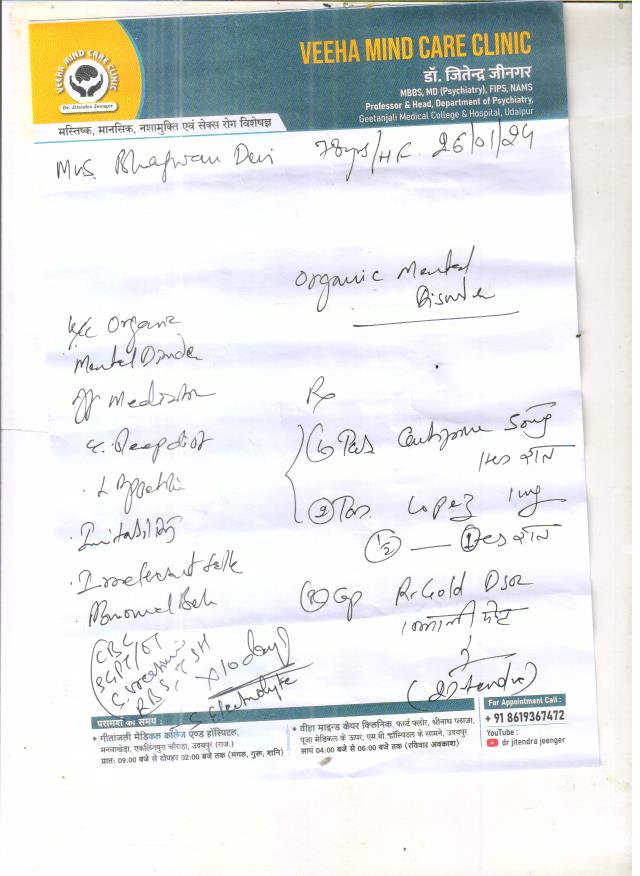 VEEHA MIND CARE CLINIC
VEEHA MIND CARE CLINIC
Dr. Jitendra Jeenger
डॉ. जितेन्द्र जीनगर
MBBS, MD (Psychiatry), FIPS, NAMS
Professor & Head, Department of Psychiatry,
Geetanjali Medical College & Hospital, Udaipur
मस्तिष्क, मानसिक, नशामुक्ति एवं सेक्स रोग विशेषज्ञ
Mrs. Bhagwan Devi 78yrs/ 26/01/24
Organic Mental
Disorder
k/c Organic
Mental Disorder
Rx
Sleep dist
↓ Appetite
① Tab 50mg
HS रात
Irritability
② Tab. Lopez 1mg
1/2 — ① HS रात
Irrelevant talk
Abnormal Beh
③ Cap R-Gold DSR
1 खाली पेट
CBC
SGPT/OT
S. creatinine
RBS, TSH
S. Electrolyte
x 10 days
(Jitendra)
परामर्श का समय :
• गीतांजली मेडिकल कॉलेज एण्ड हॉस्पिटल,
मनवाखेड़ा, एकलिंगपुरा चौराहा, उदयपुर (राज.)
प्रातः 09:00 बजे से दोपहर 02:00 बजे तक (मंगल, गुरू, शनि)
• वीहा माइन्ड केयर क्लिनिक, फर्स्ट फ्लोर, श्रीनाथ प्लाजा,
पूजा मेडिकल के ऊपर, एम.बी. हॉस्पिटल के सामने, उदयपुर
सायं 04:00 बजे से 06:00 बजे तक (रविवार अवकाश)
For Appointment Call :
+ 91 8619367472
YouTube :
dr jitendra jeenger